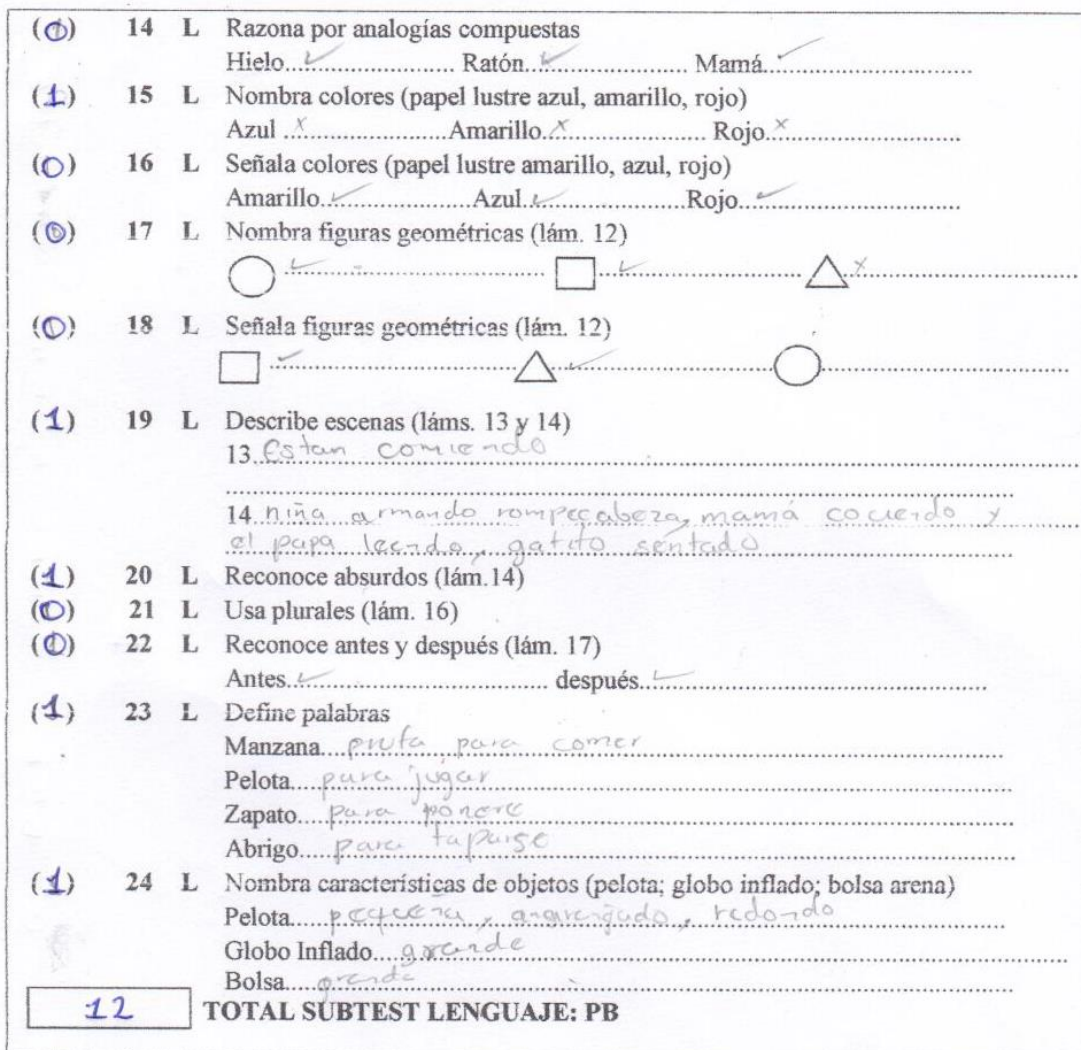 14 L Razona por analogías compuestas
Hielo ✓ Ratón ✓ Mamá ✓
(1) 15 L Nombra colores (papel lustre azul, amarillo, rojo)
Azul x Amarillo x Rojo x
(0) 16 L Señala colores (papel lustre amarillo, azul, rojo)
Amarillo ✓ Azul ✓ Rojo ✓
17 L Nombra figuras geométricas (lám. 12)
✓ ✓ x
18 L Señala figuras geométricas (lám. 12)
✓ ✓
(1) 19 L Describe escenas (láms. 13 y 14)
13 Estan comiendo
14 niña armando rompecabeza, mamá cociendo y
el papa leendo, gatito sentado
(1) 20 L Reconoce absurdos (lám.14)
21 L Usa plurales (lám. 16)
22 L Reconoce antes y después (lám. 17)
Antes ✓ después ✓
(1) 23 L Define palabras
Manzana fruta para comer
Pelota para jugar
Zapato para ponerse
Abrigo para taparse
(1) 24 L Nombra características de objetos (pelota; globo inflado; bolsa arena)
Pelota pequeña, redondo
Globo Inflado grande
Bolsa grande
12 TOTAL SUBTEST LENGUAJE: PB